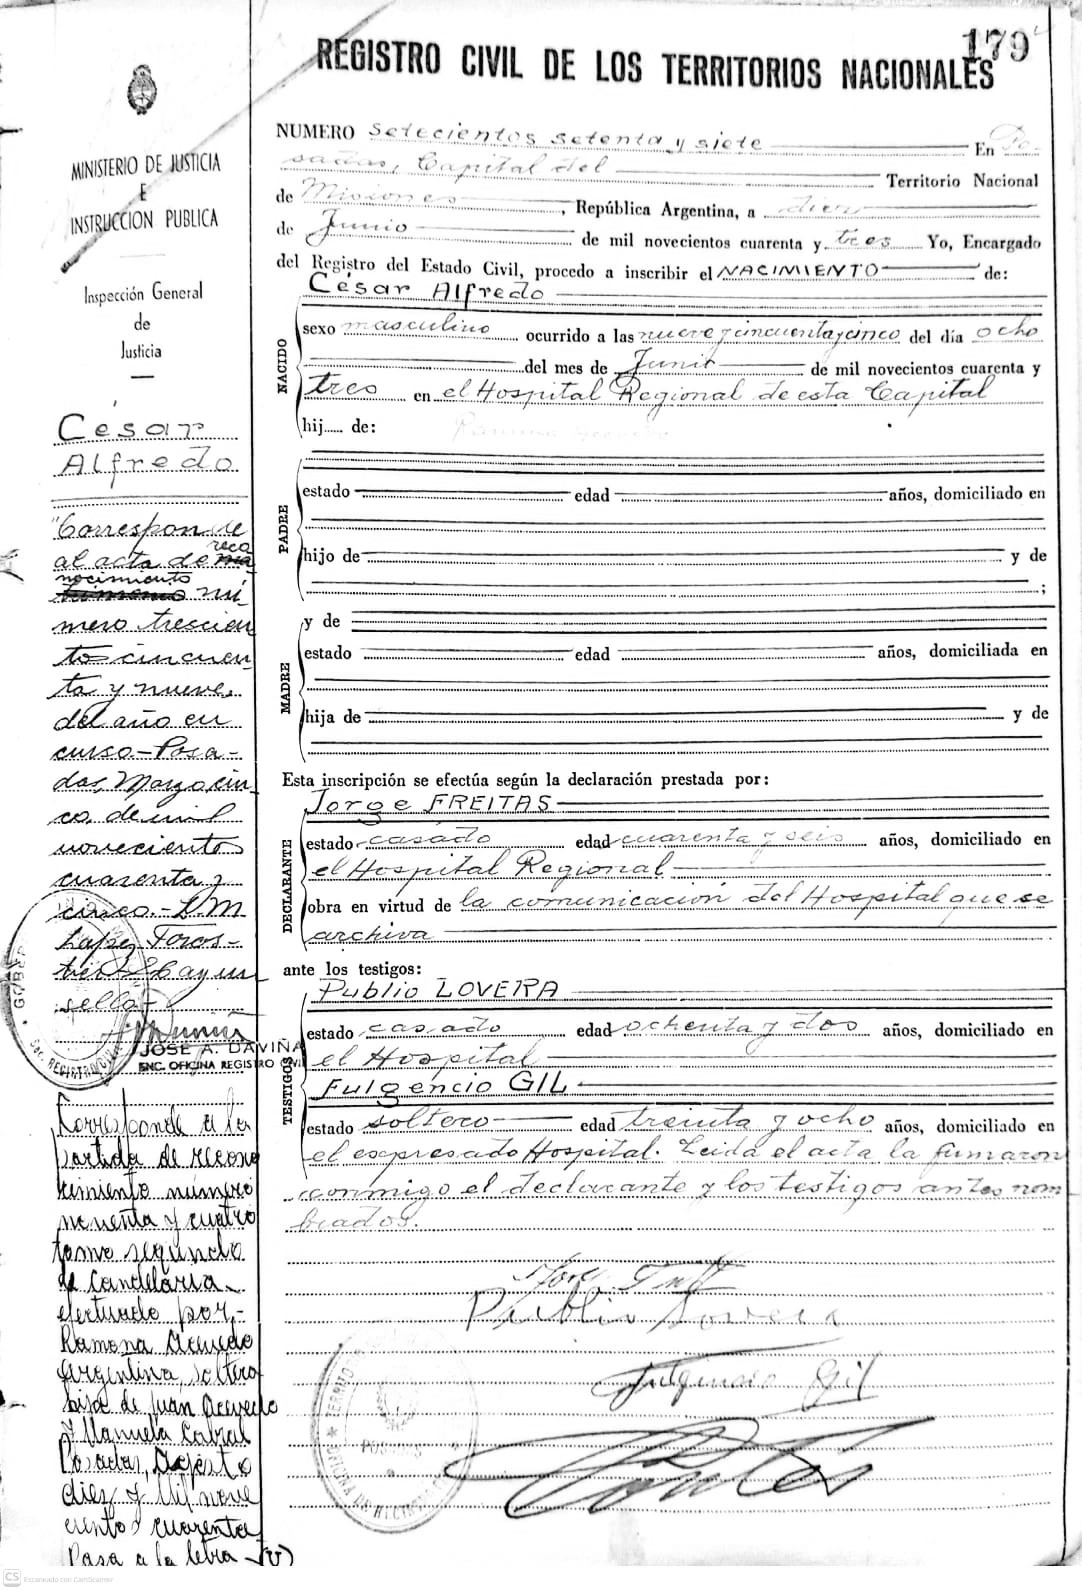 179
REGISTRO CIVIL DE LOS TERRITORIOS NACIONALES
MINISTERIO DE JUSTICIA
E
INSTRUCCION PUBLICA
Inspección General
de
Justicia
César
Alfredo
"Corresponde
al acta de reco
nocimiento nú-
mero trescien
tos cincuen
ta y nueve,
del año en
curso.- Posa-
das, Marzo cin
co, de mil
novecientos
cuarenta y
cinco.-
sella-
JOSE A. DAVIÑA
ENC. OFICINA REGISTRO CIVIL
Corresponde a la
partida de recono
cimiento número
noventa y cuatro
tomo segundo
de Candelaria
efectuado por-
Ramona Acevedo
Argentina, soltera
hija de Juan Acevedo
y Manuela Cabral
Posadas, Agosto
diez y Mil nove
ciento cuarenta
Pasa a la letra (V)
NUMERO Setecientos setenta y siete En Po-
sadas, Capital del Territorio Nacional
de Misiones, República Argentina, a diez
de Junio de mil novecientos cuarenta y tres Yo, Encargado
del Registro del Estado Civil, procedo a inscribir el NACIMIENTO de:
NACIDO
César Alfredo
sexo masculino ocurrido a las nueve y cincuenta y cinco del día ocho
del mes de Junio de mil novecientos cuarenta y
tres en el Hospital Regional de esta Capital
hij..... de:
PADRE
estado edad años, domiciliado en
hijo de y de
;
MADRE
y de
estado edad años, domiciliada en
hija de y de
Esta inscripción se efectúa según la declaración prestada por:
DECLARANTE
Jorge FREITAS
estado casado edad cuarenta y seis años, domiciliado en
el Hospital Regional
obra en virtud de la comunicación del Hospital que se
archiva
ante los testigos:
TESTIGOS
Publio LOVERA
estado casado edad ochenta y dos años, domiciliado en
el Hospital
Fulgencio GIL
estado soltero edad treinta y ocho años, domiciliado en
el expresado Hospital. Leida el acta la firmaron
conmigo el declarante y los testigos antes nom
brados.
Publio Lovera
Fulgencio Gil
CS Escaneado con CamScanner